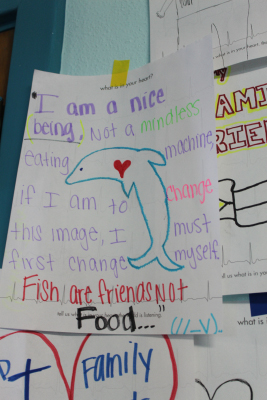 what is in your heart?
I am a nice
being, Not a mindless
eating machine
if I am to change
this image, I must
first change myself
Fish are friends Not
Food..."
(//_v).
tell us what
ld is listening.
AMI
RIE
what is
Family